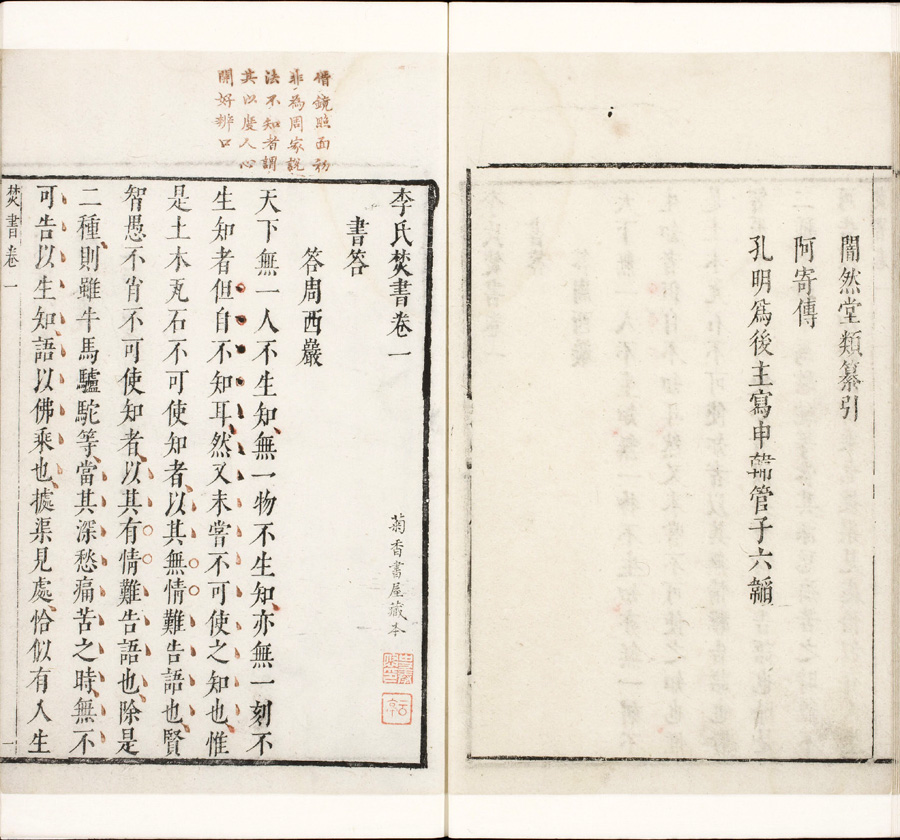 闇然堂類纂引
阿寄傳
孔明爲後主寫申韓管子六韜
李氏焚書卷一
菊香書屋藏本
書答
答周西巖
天下無一人不生知無一物不生知亦無一刻不
生知者但自不知耳然又未嘗不可使之知也惟
是土木瓦石不可使知者以其無情難告語也賢
智愚不肖不可使知者以其有情難告語也除是
二種則雖牛馬驢駝等當其深愁痛苦之時無不
可告以生知語以佛乘也據渠見處恰似有人生
焚書卷一
一
借鏡照面初
非為周家說
法不知者謂
其以度人心
開好辦口